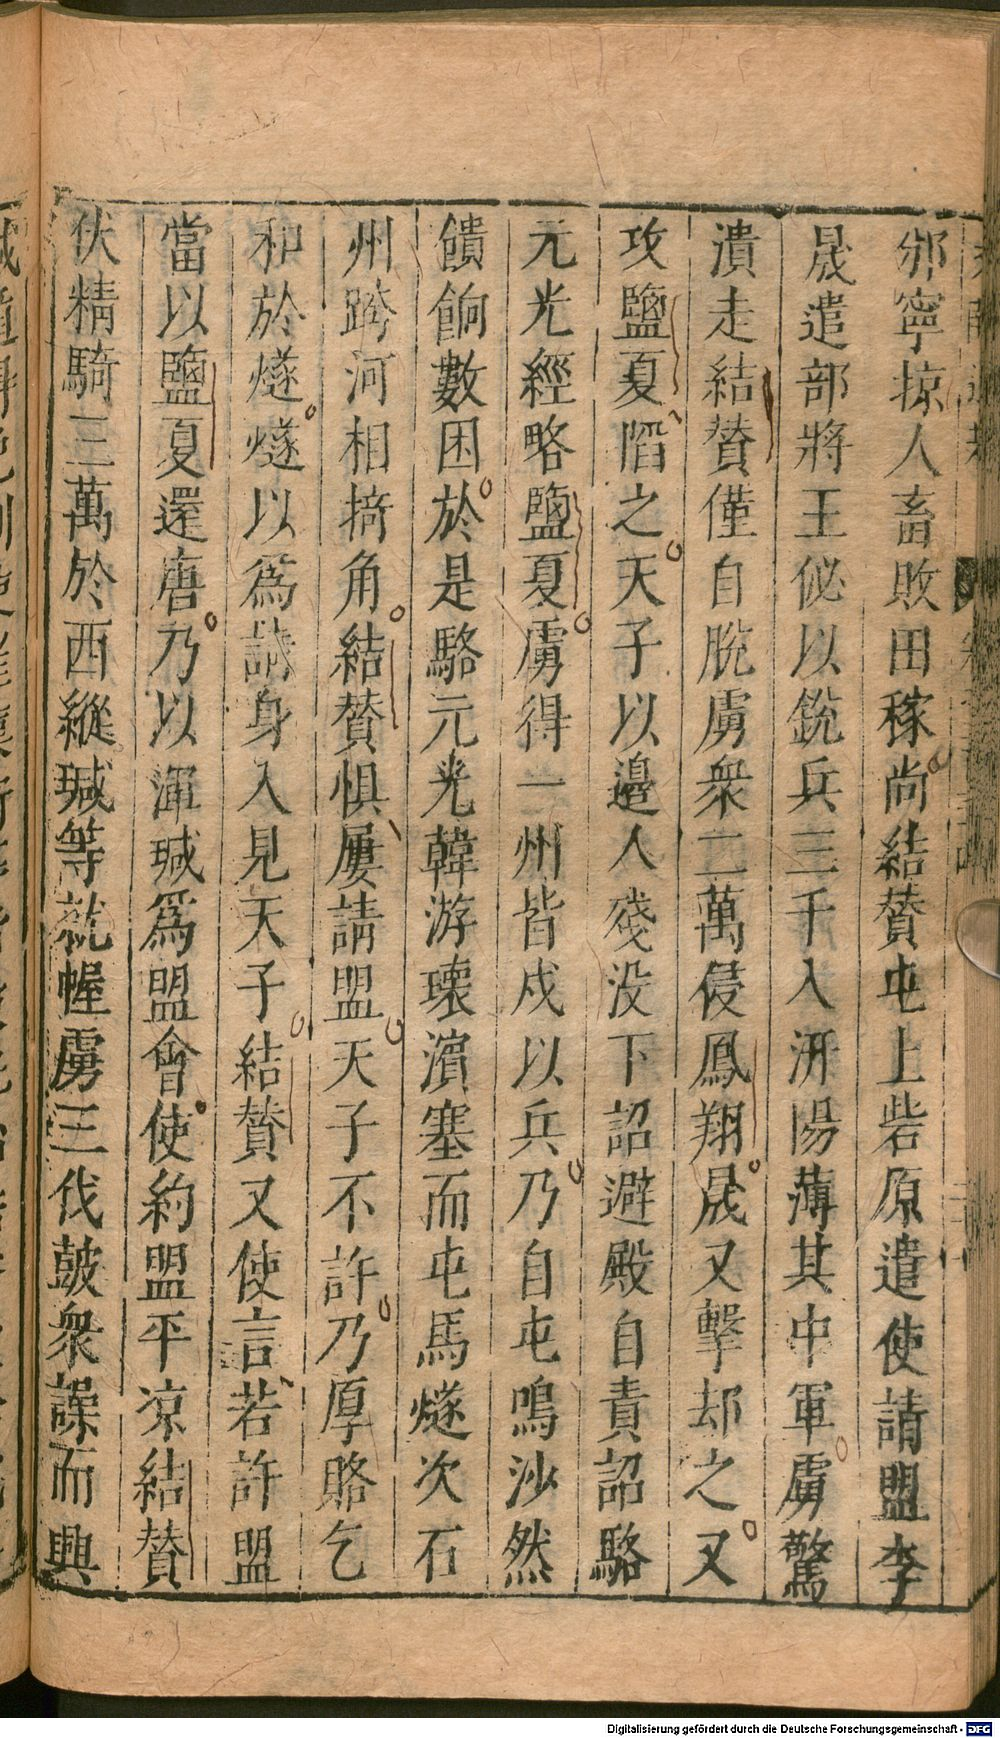 邠寧掠人畜敗田稼尚結贊屯上砦原遣使請盟李
晟遣部將王佖以銳兵三千入汧陽薄其中軍虜驚
潰走結贊僅自脫虜衆二萬侵鳳翔晟又擊却之又
攻鹽夏陷之天子以邊人殘没下詔避殿自責詔駱
元光經略鹽夏虜得一州皆戍以兵乃自屯鳴沙然
饋餉數困於是駱元光韓游瓌濱塞而屯馬燧次石
州跨河相掎角結贊惧屢請盟天子不許乃厚賂乞
和於燧燧以爲誠身入見天子結贊又使言若許盟
當以鹽夏還唐乃以渾瑊爲盟會使約盟平凉結贊
伏精騎三萬於西縱瑊等就幄虜三伐鼓衆譟而興
Digitalisierung gefördert durch die Deutsche Forschungsgemeinschaft - DFG